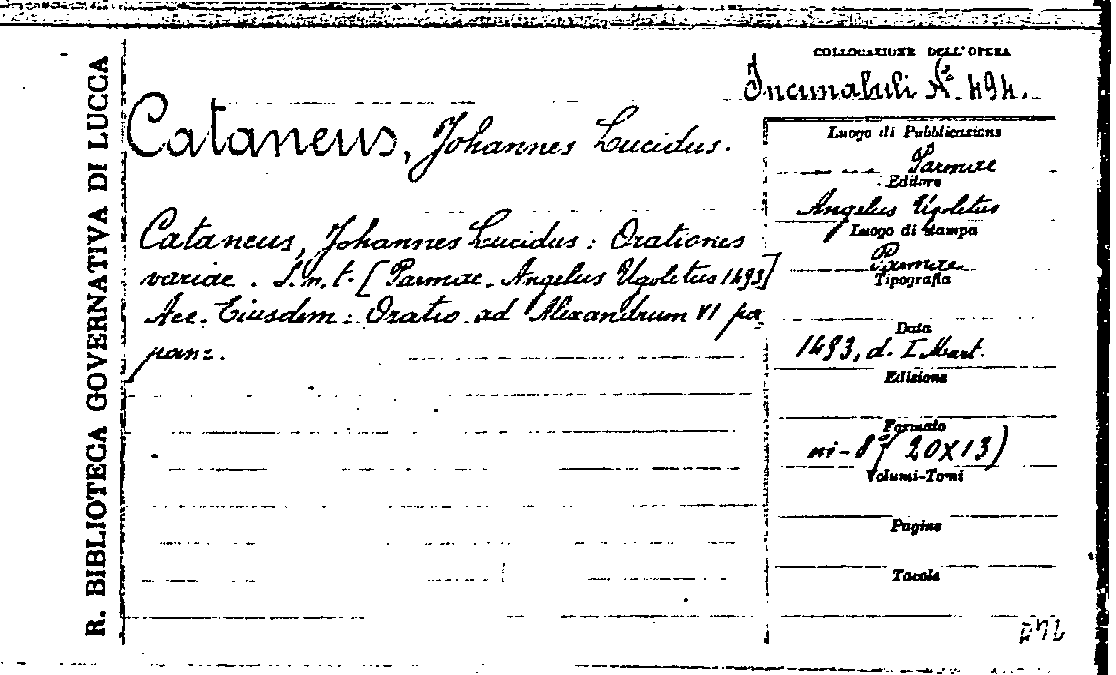 R. BIBLIOTECA GOVERNATIVA DI LUCCA
COLLOCAZIONE DELL'OPERA
Incunabuli No. 494.
Cataneus, Johannes Lucidus.
Cataneus, Johannes Lucidus: Orationes
variae. S.n.t. [Parmae. Angelus Ugoletus 1493]
Acc. Eiusdem: Oratio ad Alexandrum VI pa
pam.
Luogo di Pubblicazione
Parmae
Editore
Angelus Ugoletus
Luogo di Stampa
Parmae
Tipografia
Data
1493, d. I Mart.
Edizione
Formato
in-8° (20x13)
Volumi-Tomi
Pagine
Tavole